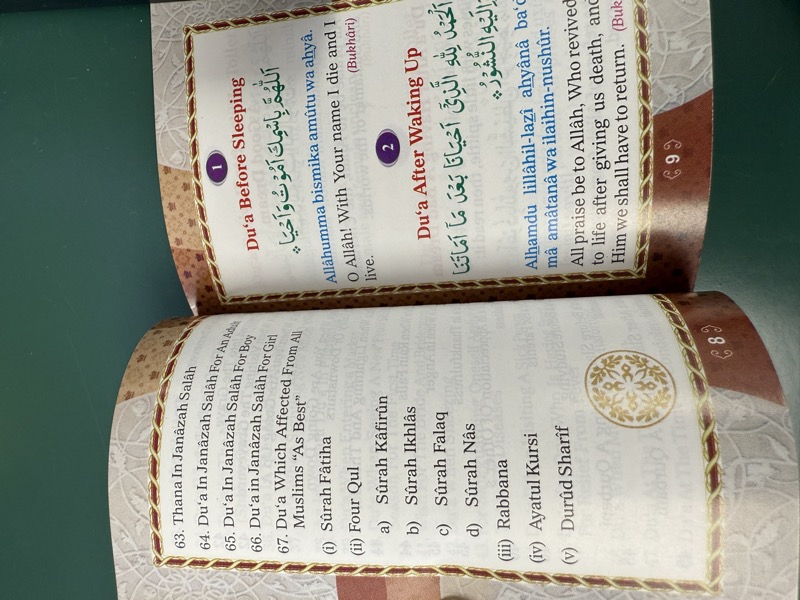 63. Thana In Janâzah Salâh
64. Du‘a In Janâzah Salâh For An Adult
65. Du‘a In Janâzah Salâh For Boy
66. Du‘a in Janâzah Salâh For Girl
67. Du‘a Which Affected From All
Muslims “As Best”
(i) Sûrah Fâtiha
(ii) Four Qul
a) Sûrah Kâfirûn
b) Sûrah Ikhlâs
c) Sûrah Falaq
d) Sûrah Nâs
(iii) Rabbana
(iv) Ayatul Kursi
(v) Durûd Sharîf
8
1
Du‘a Before Sleeping
اَللّٰهُمَّ بِاسْمِكَ اَمُوْتُ وَاَحْيَا
Allâhumma bismika amûtu wa ahyâ.
O Allâh! With Your name I die and I
live. (Bukhâri)
2
Du‘a After Waking Up
اَلْحَمْدُ لِلّٰهِ الَّذِىْ اَحْيَانَا بَعْدَ مَا اَمَاتَنَا
وَاِلَيْهِ النُّشُوْرُ
Alhamdu lillâhil-lazi ahyânâ ba‘d
mâ amâtanâ wa ilaihin-nushûr.
All praise be to Allâh, Who revived
to life after giving us death, and
Him we shall have to return. (Buk
9